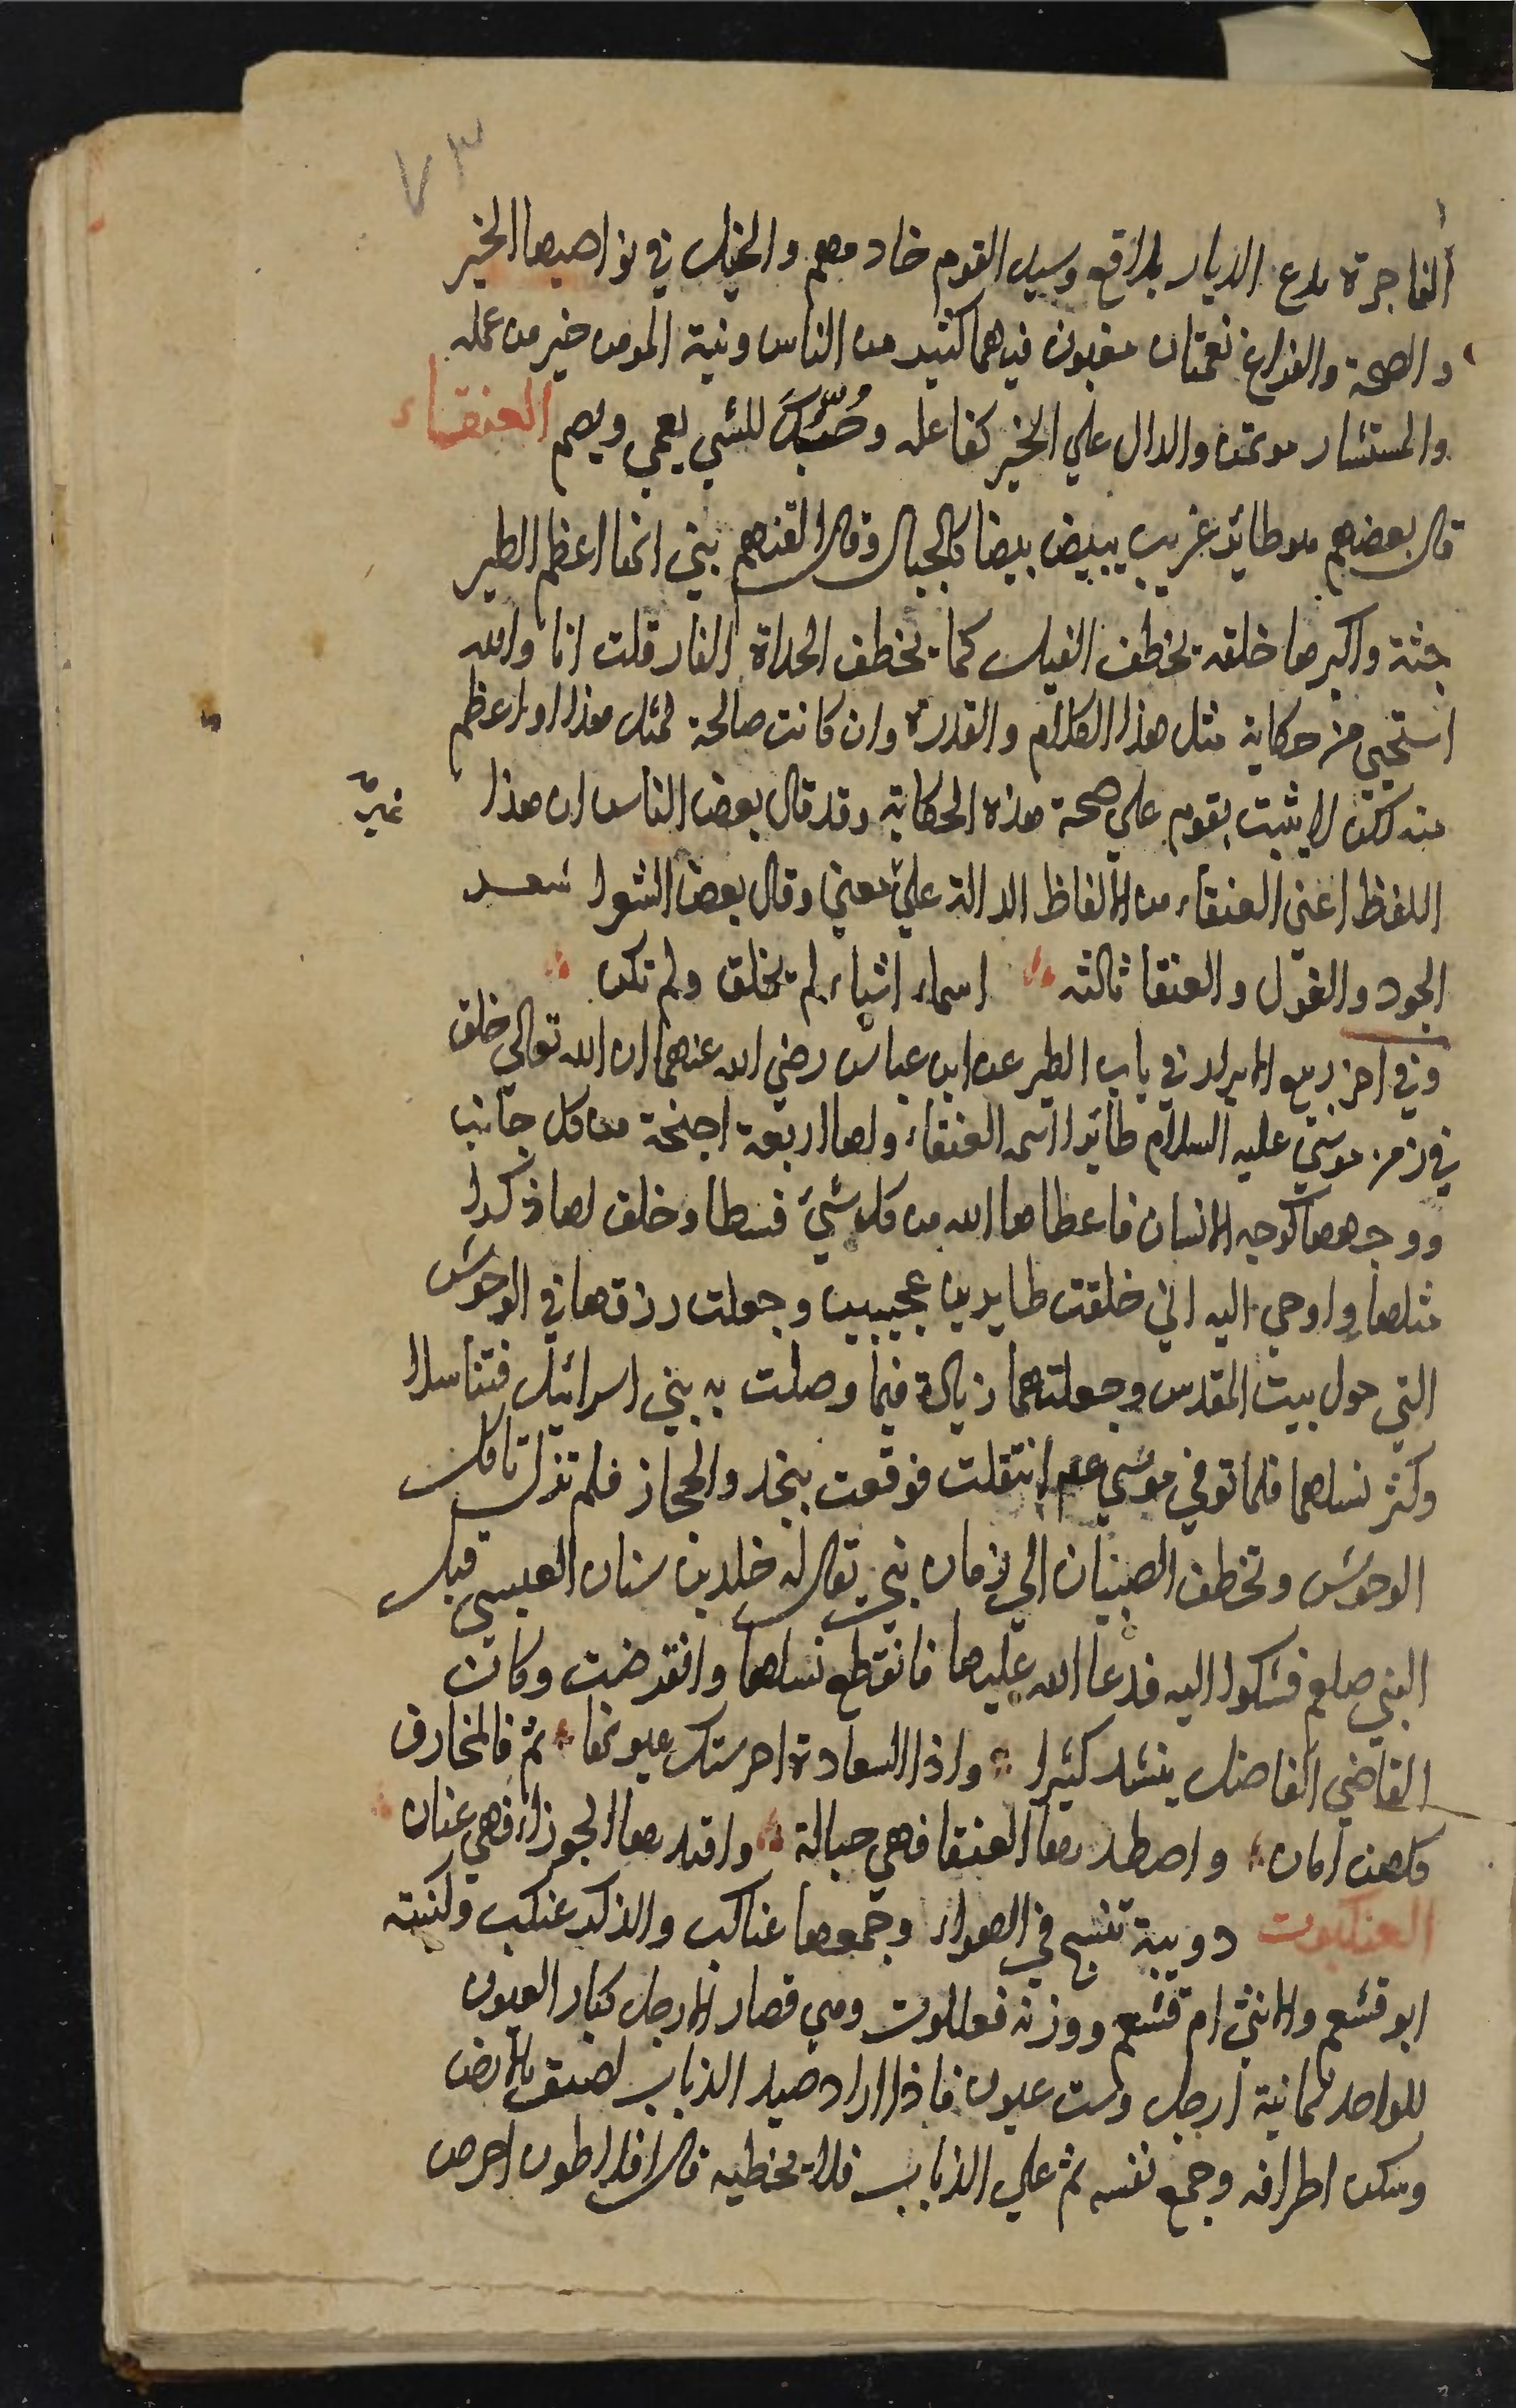 ٧٣
الفاجرة تدع الديار بلاقع وسيد القوم خادمهم والخيل في نواصيها الخير
والصحة والفراغ نعمتان مغبون فيهما كثير من الناس ونية المومن خير من عمله
والمستشار موتمن والدال علي الخير كفاعله وحُبُّكَ للشي يعمي ويصم العنقاء
قال بعضهم هو طائر غريب يبيض بيضا كالجبال وقال القزهم بيني انها اعظم الطير
جثة واكبرها خلقه يخطف الفيل كما يخطف الحداة الفار قلت انا والله
استحيي من حكاية مثل هذا الكلام والقدرة وان كانت صالحة لمثل هذا او اعظم
منه لكن لا يثبت بقوم علي صحة هذه الحكاية وقد قال بعض الناس ان هذا
غير
اللفظ اعني العنقاء من الالفاظ الدالة علي معني وقال بعض الشعرا شعـــر
الجود والغول والعنقا ثالثه اسماء اشياء لم يخلق ولم تكن
وفي اخر ربيع الابرار في باب الطير عن ابن عباس رضي الله عنهما ان الله تعالي خلق
في زمن موسي عليه السلام طائرا اسمه العنقاء ولها اربعة اجنحة من كل جانب
ووجهها كوجه الانسان فاعطاها الله من كل شيء قسطا وخلق لها ذكرا
مثلها واوحي اليه اني خلقت طايرين عجيبين وجعلت رزقها في الوحوش
التي حول بيت المقدس وجعلتهما زيادة فيما وصلت به بني اسرائيل فتناسلا
وكثر نسلهما فلما توفي موسي عم انتقلت فوقعت بنجد والحجاز فلم تزل تاكل
الوحوش وتخطف الصبيان الي زمان نبي يقال له خلد بن سنان العبسي قبل
النبي صلعم فشكوا اليه فدعا الله عليها فانقطع نسلها وانقرضت وكان
القاضي الفاضل ينشد كثيرا واذا السعادة احرستك عيونها نم فالمخاوف
كلهن امان واصطد بها العنقا فهي حبالة واقتد بها الجوزاء فهي عنان
العنكبوت دويبة تنسج في الهواء وجمعها عناكب والذكر عنكب وكنيته
ابو قشعم والانثي ام قشعم ووزنه فعللوت وهي قصار الارجل كبار العيون
للواحد ثمانية ارجل وست عيون فاذا اراد صيد الذباب لصق بالارض
وسكن اطرافه وجمع نفسه ثم علي الذباب فلا يخطيه قال افلاطون احرص